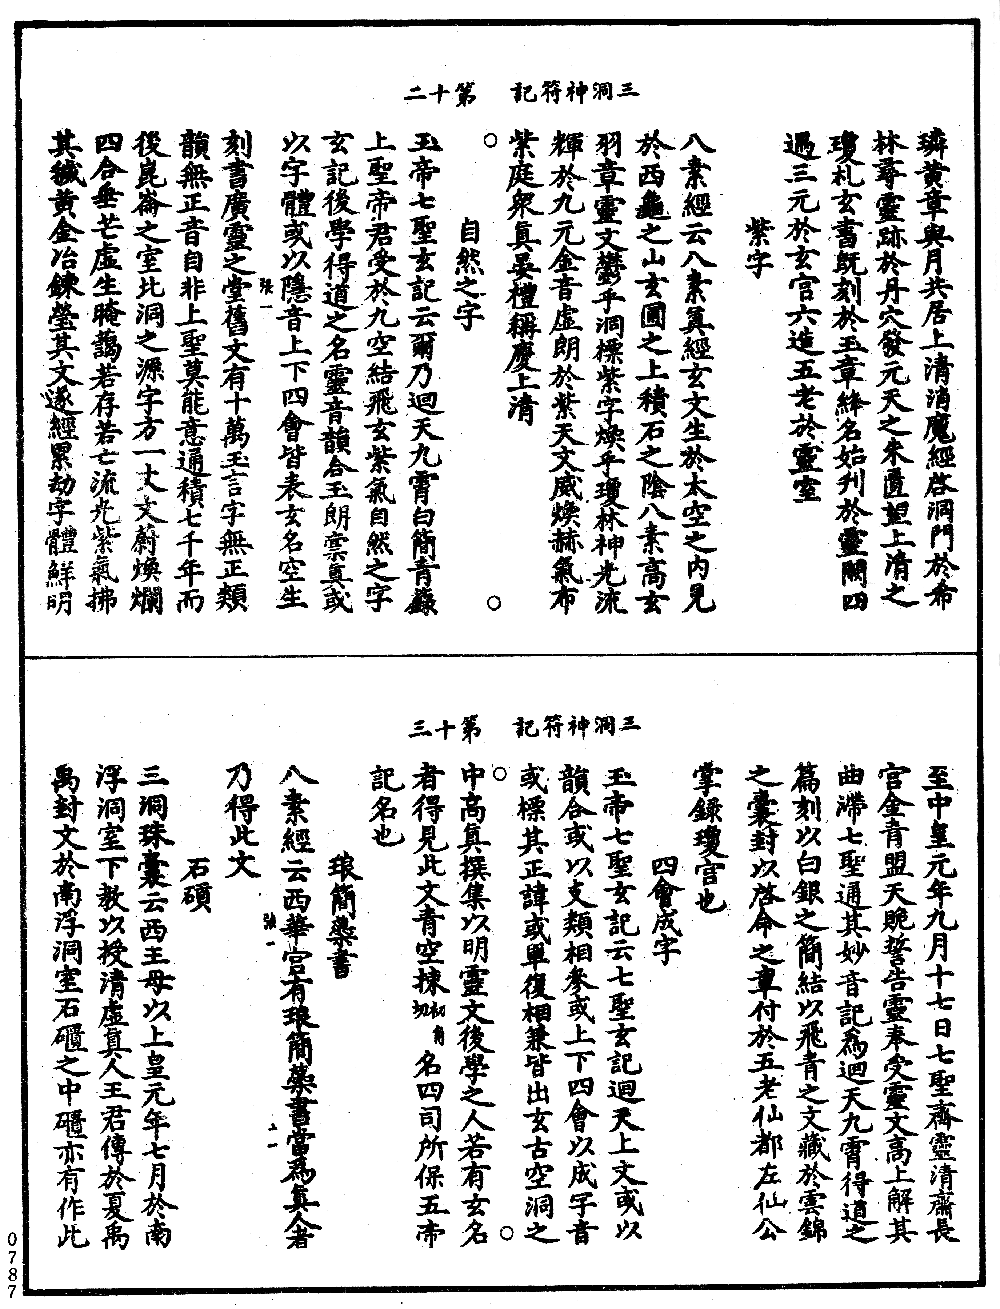 三洞神符記　第十二
璘黃章與月共居上清消魔經啓洞門於希
林尋靈跡於丹穴發元天之朱匱望上清之
瓊札玄書既刻於玉章絳名始刊於靈關四
過三元於玄宮六造五老於靈室
紫字
八素經云八素真經玄文生於太空之內見
於西龜之山玄圃之上積石之陰八素高玄
羽章靈文鬱乎洞標紫字煥乎瓊林神光流
輝於九元金音虛朗於紫天文威煥赫氣布
紫庭衆真晏禮稱慶上清
自然之字
玉帝七聖玄記云爾乃迴天九霄白簡青籙
上聖帝君受於九空結飛玄紫氣自然之字
玄記後學得道之名靈音韻合玉朗稟真或
以字體或以隱音上下四會皆表玄名空生
張一
刻書廣靈之堂舊文有十萬玉言字無正類
韻無正音自非上聖莫能意通積七千年而
後崑崙之室北洞之源字方一丈文蔚煥爛
四合垂芒虛生晻藹若存若亡流光紫氣拂
其穢黃金冶鍊瑩其文遂經累劫字體鮮明
三洞神符記　第十三
至中皇元年九月十七日七聖齋靈清齋長
宮金青盟天貺誓告靈奉受靈文高上解其
曲滯七聖通其妙音記爲迴天九霄得道之
篇刻以白銀之簡結以飛青之文藏於雲錦
之囊封以啓命之章付於五老仙都左仙公
掌錄瓊宮也
四會成字
玉帝七聖玄記云七聖玄記迴天上文或以
韻合或以支類相參或上下四會以成字音
或標其正諱或單復相兼皆出玄古空洞之
中高真撰集以明靈文後學之人若有玄名
者得見此文青空揀初角切名四司所保五帝
記名也
琅簡蘂書
八素經云西華宮有琅簡蘂書當爲真人者
張一
乃得此文
石碩
三洞珠囊云西王母以上皇元年七月於南
浮洞室下教以授清虛真人王君傳於夏禹
禹封文於南浮洞室石櫃之中櫃亦有作此
0787